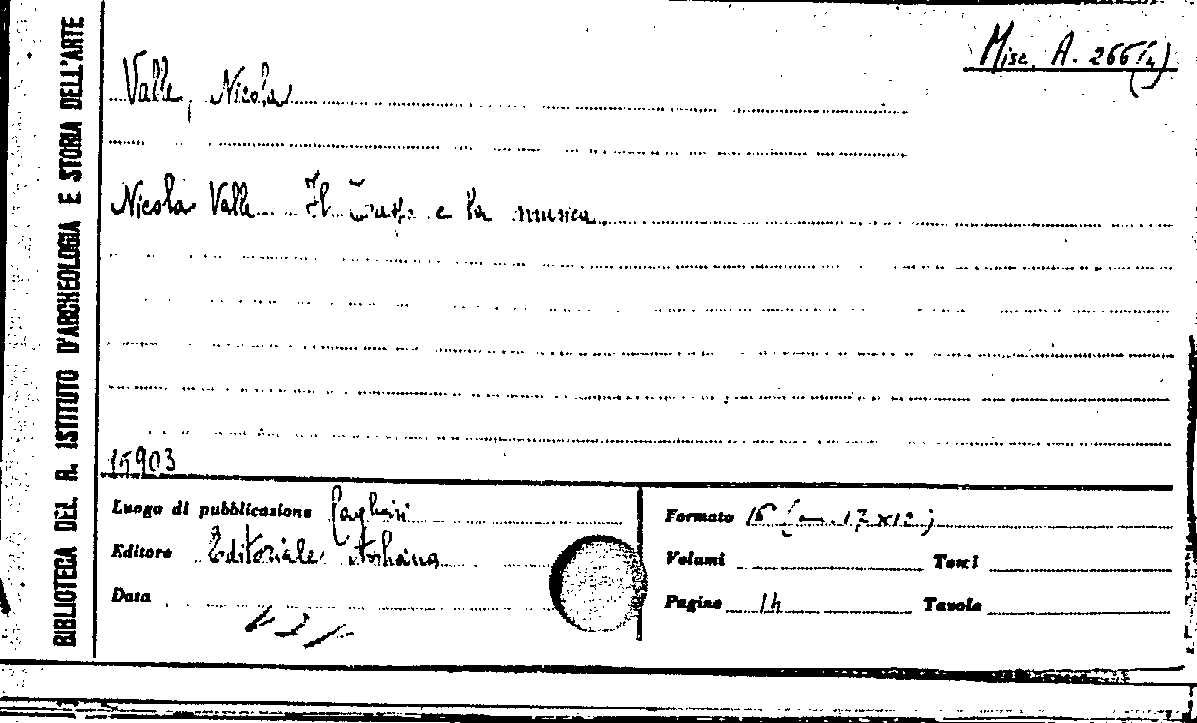 BIBLIOTECA DEL R. ISTITUTO D'ARCHEOLOGIA E STORIA DELL'ARTE
Misc. A. 266(4)
Valle, Nicola
Nicola Valle Il e la musica
15903
Luogo di pubblicazione Cagliari
Editore Editoriale
Data
Formato 16 (cm. 17x12)
Volumi Tomi
Pagine 14 Tavole